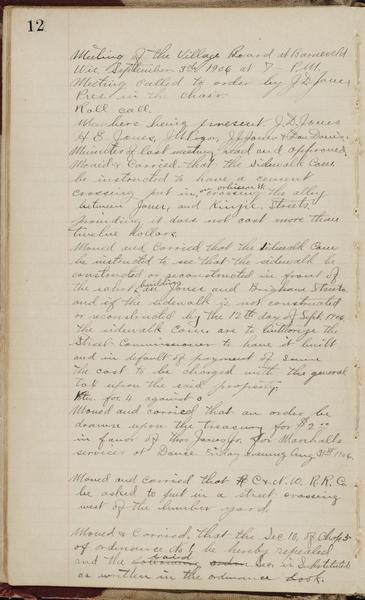 12
Meeting of the Village Board at Barneveld
Wis, September 3rd 1906 at 7 — P.M.
Meeting called to order by J.D. Jones
Pres in the Chair
Roll call.
Members being present J.D. Jones
H E. Jones, J. J. Jones &
Minutes of last meeting read and approved
Moved & Carried, that the sidewalk Com
be instructed to have a cement
crossing put in, on crossing the alley
between Jones, and Kingie, Streets.
providing it does not cost more than
twelve dollars.
Moved and carried that the sidewalk Com
be instructed to see that the sidewalk be
constructed or reconstructed in front of
the building Jones and Streets
and if the sidewalk is not constructed
or reconstructed by the 12th day of Sept 1906
the sidewalk Com. are to authorize the
Street Commissioner to have it built
and in default of payment of same
the cost to be charged with the general
tax upon the said property.
for 4 against 0
Moved and carried that an order be
drawn upon the treasury for $2.00
in favor of Thos James Jr. for Marshalls
services at Dance Friday evening Aug 31st 1906.
Moved and carried that C & N. W. R.R. Co
be asked to put in a street crossing
west of the lumber yard.
Moved & Carried, that the Sec 10, of Chap 5
of ordinance No 1 be hereby repealed
and the said Sec. is Substituted
as written in the ordinance book.